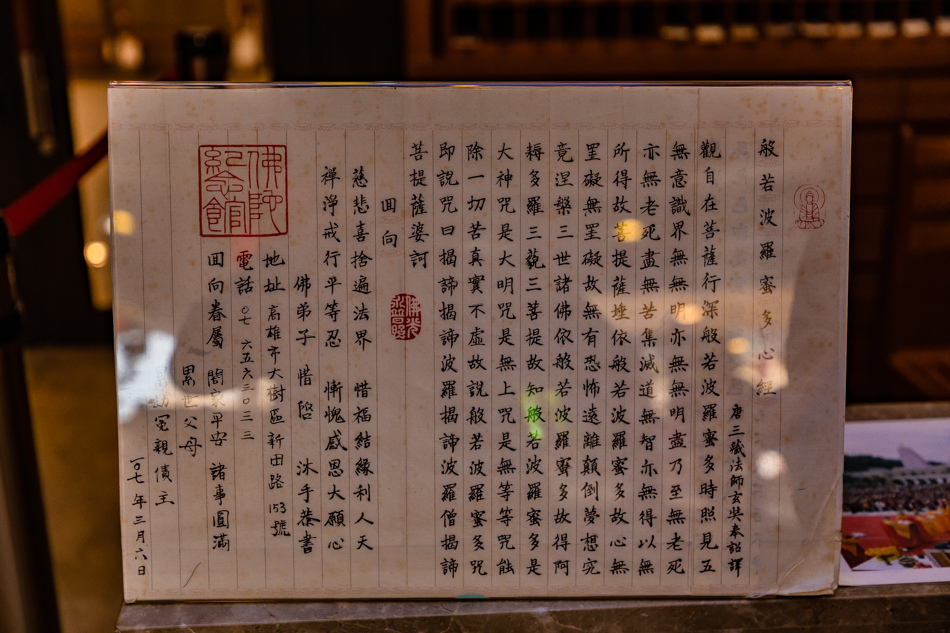 般若波羅蜜多心經
唐三藏法師玄奘奉詔譯
觀自在菩薩行深般若波羅蜜多時照見五
無意識界無無明亦無無明盡乃至無老死
亦無老死盡無苦集滅道無智亦無得以無
所得故菩提薩埵依般若波羅蜜多故心無
罣礙無罣礙故無有恐怖遠離顛倒夢想究
竟涅槃三世諸佛依般若波羅蜜多故得阿
耨多羅三藐三菩提故知般若波羅蜜多是
大神咒是大明咒是無上咒是無等等咒能
除一切苦真實不虛故說般若波羅蜜多咒
即說咒曰揭諦揭諦波羅揭諦波羅僧揭諦
菩提薩婆訶
回向
慈悲喜捨遍法界 惜福結緣利人天
禪淨戒行平等忍 慚愧感恩大願心
佛弟子 惜 沐手恭書
地址 高雄市大樹區新田路153號
電話 〇七 六五六三〇三三
佛陀紀念館
回向眷屬 闔家平安 諸事圓滿
累世父母
冤親債主
一〇七年三月六日